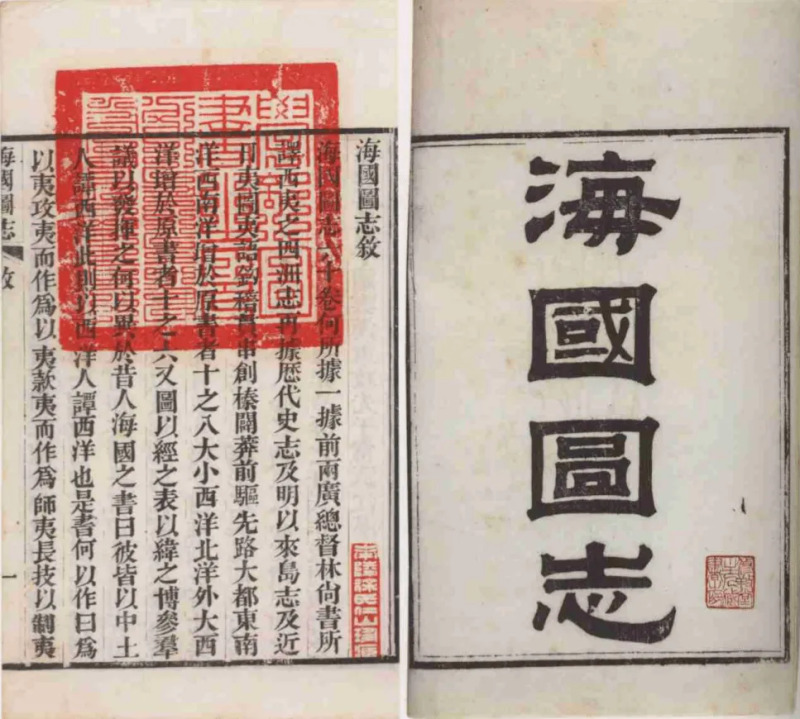 海國圖志
海國圖志敘
海國圖志六十卷何所據一據前兩廣總督林尚書所
譯西夷之四洲志再據歷代史志及明以來島志及近
日夷圖夷語鉤稽貫串創榛闢莽前驅先路大都東南
洋西南洋增於原書者十之八大小西洋北洋外大西
洋增於原書者十之六又圖以經之表以緯之博參羣
議以發揮之何以異於昔人海國之書曰彼皆以中土
人譚西洋此則以西洋人譚西洋也是書何以作曰爲
以夷攻夷而作爲以夷款夷而作爲師夷長技以制夷
海國圖志 敘 一